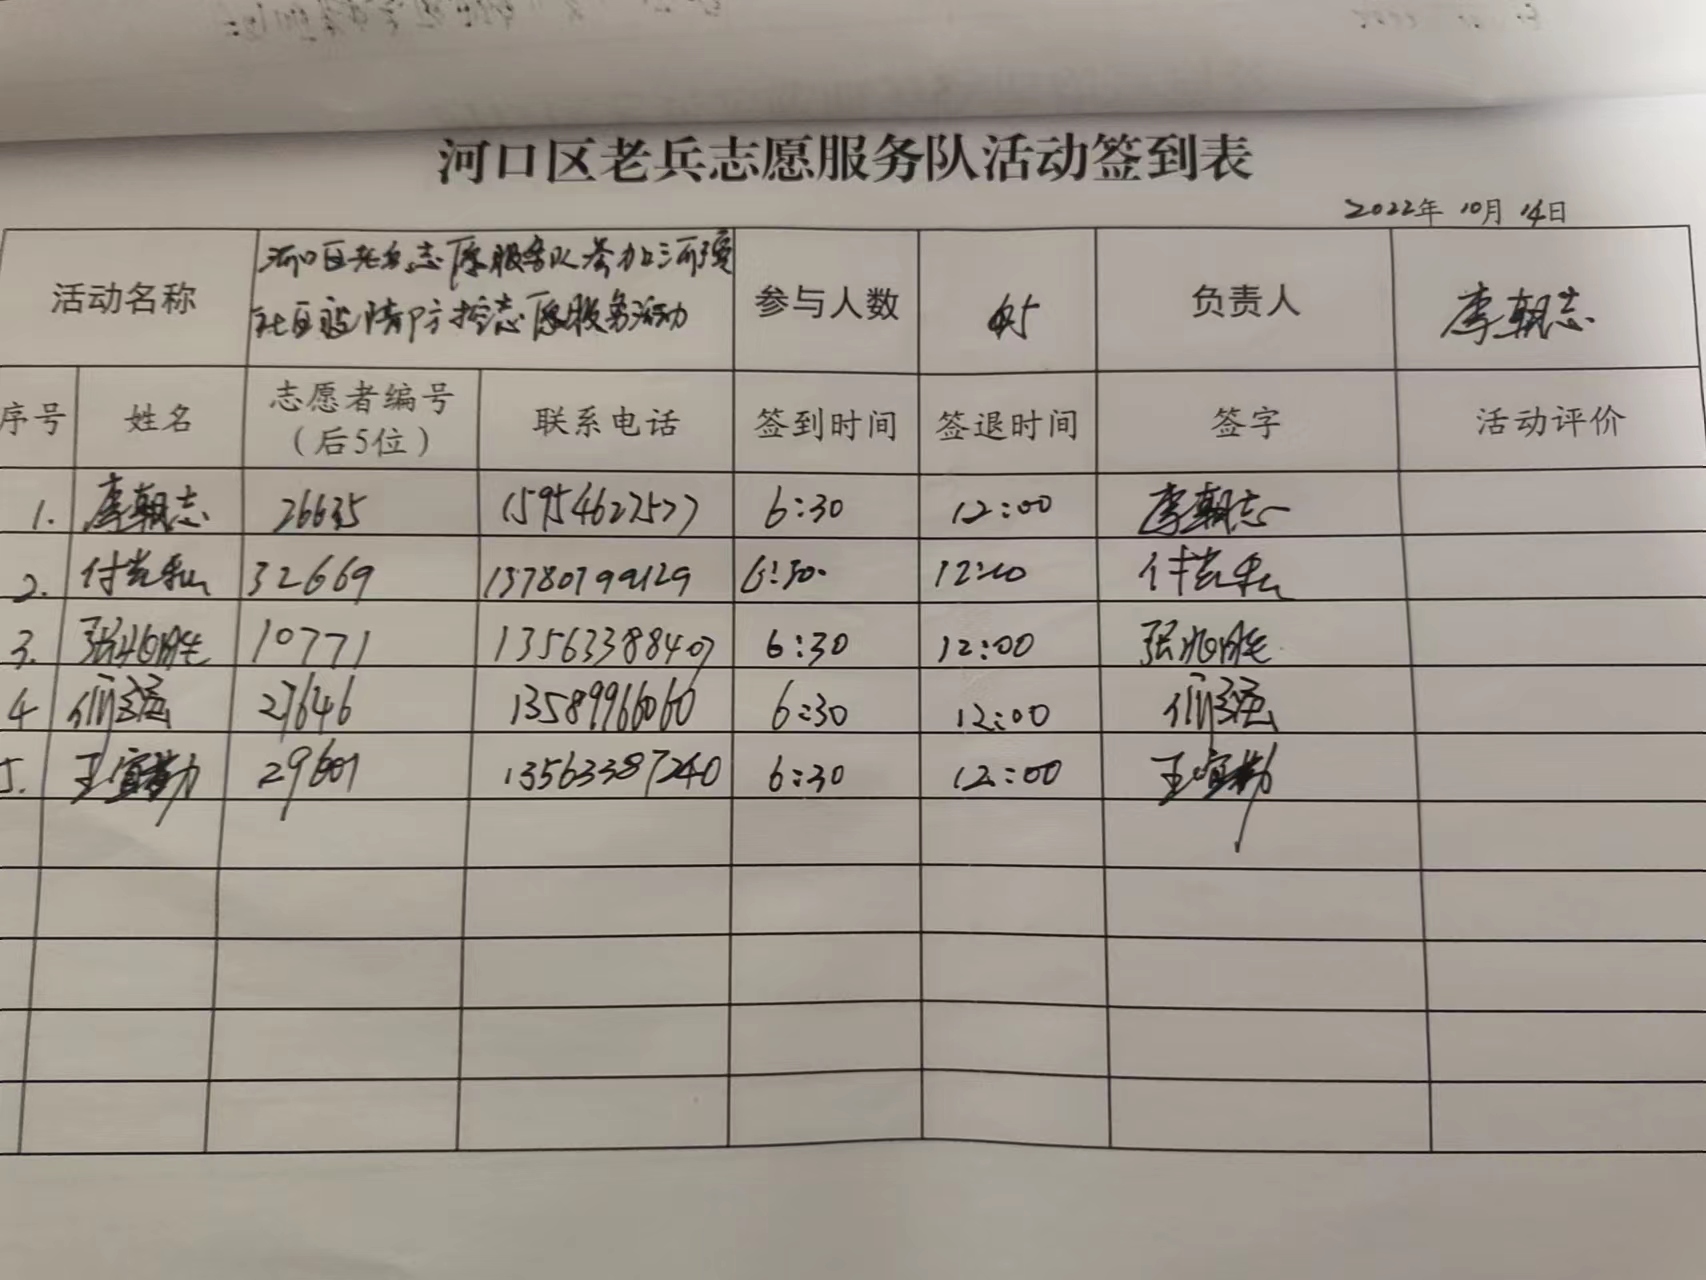 河口区老兵志愿服务队活动签到表
2022年 10月 14日
活动名称 河口区老兵志愿服务队参加河滨 社区疫情防控志愿服务活动 参与人数 5 负责人 李朝志
序号 姓名 志愿者编号（后5位） 联系电话 签到时间 签退时间 签字 活动评价
1. 李朝志 26635 15954627577 6:30 12:00 李朝志
2. 32669 6:30 12:00
3. 张兆胜 10771 13563388407 6:30 12:00 张兆胜
4 27646 13589966060 6:30 12:00
5. 王宜勤 29601 13563387240 6:30 12:00 王宜勤